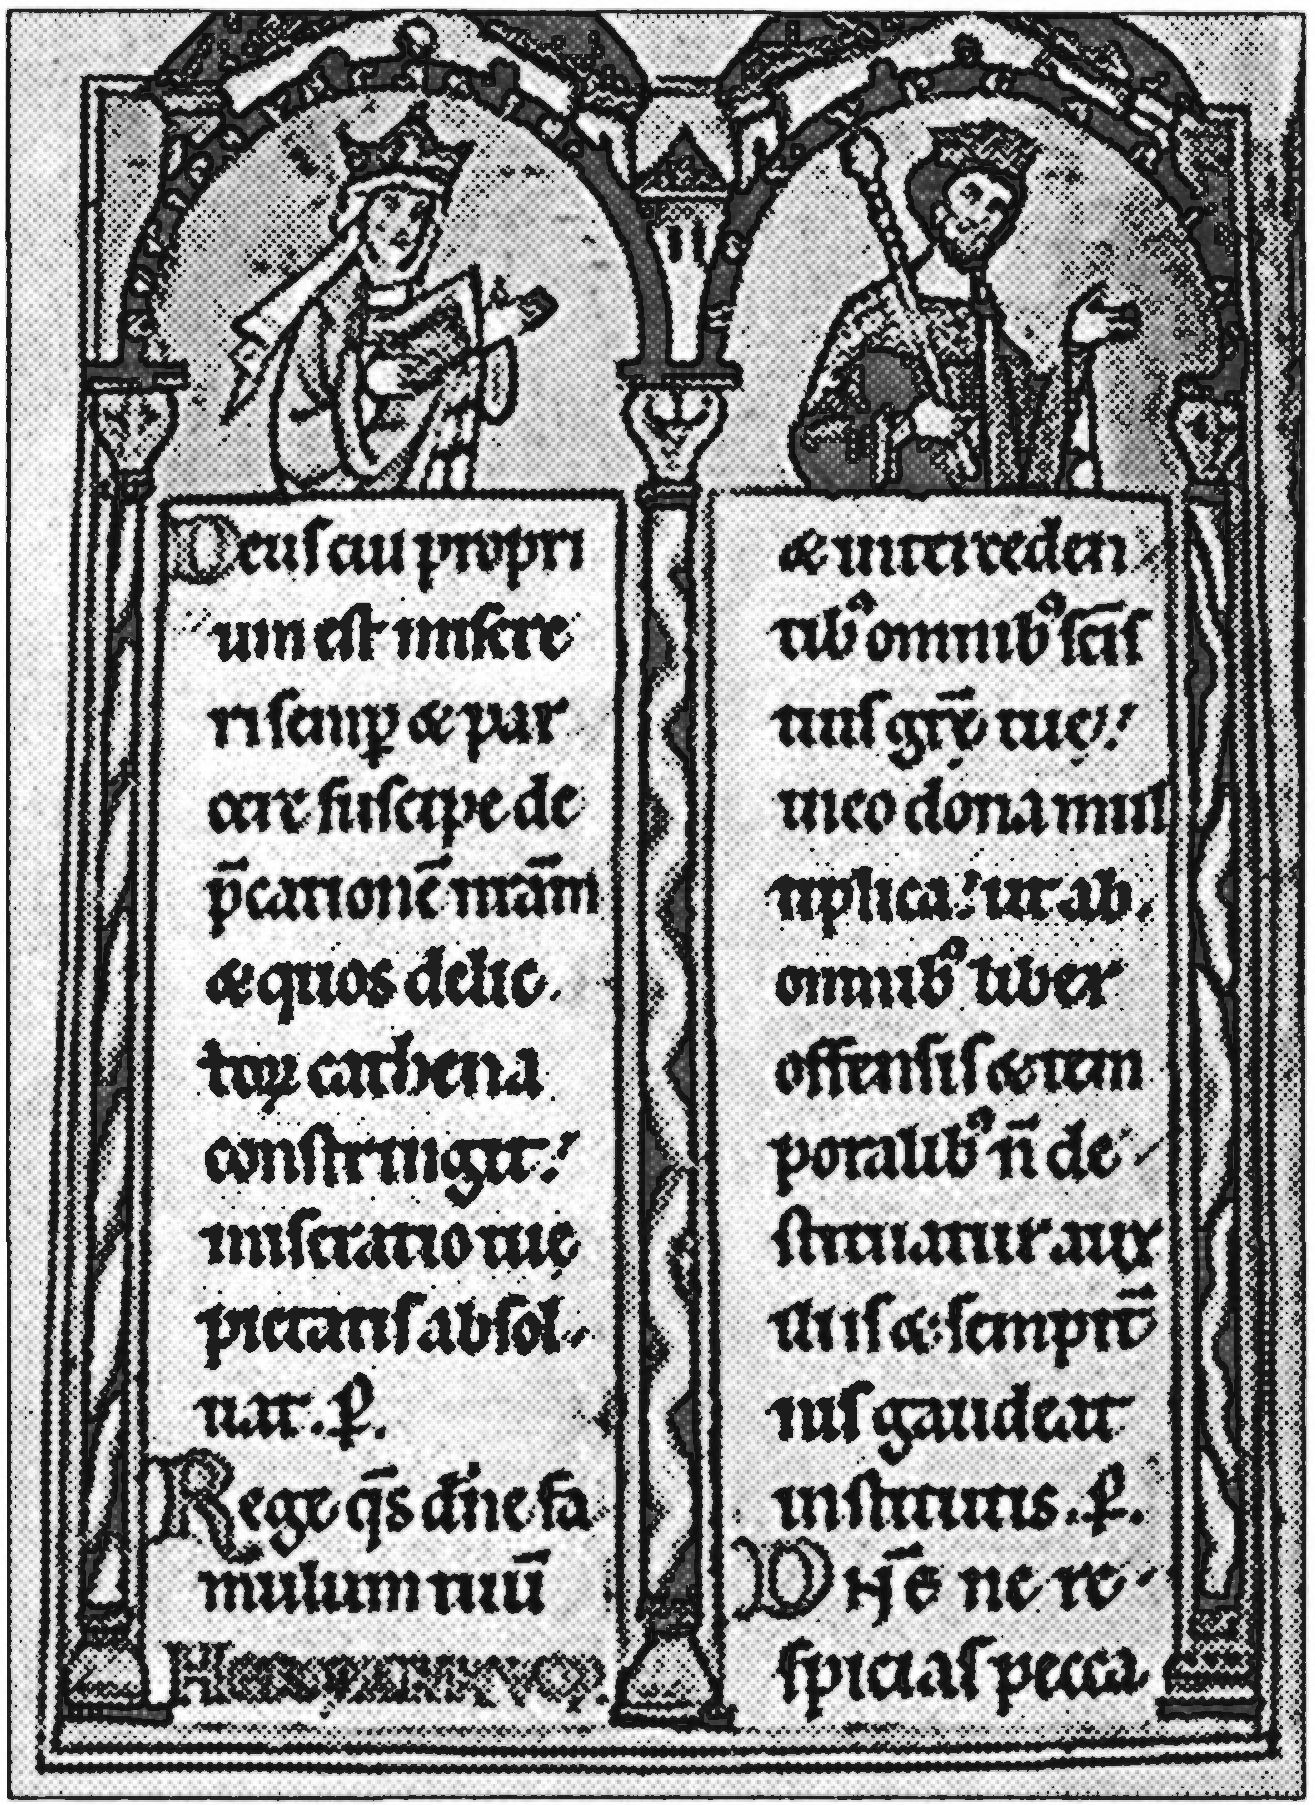 Deus cui propri
um est misere
ri semp & par
cere suscipe de
p̄cationē nr̄am
& quos delic
toꝝ cathena
constringit:
miseratio tue
pietatis absol
uat. P.
Rege q̄s dn̄e fa
mulum tuū
& interceden
tib' omnib' sc̄is
tuis grē tue
in eo dona mul
tiplica: ut ab
omnib' liber
offensis & tem
poralib' n̄ de
stituatur aux
iliis & sempit̄
nis gaudeat
institutis. P.
Dn̄e ne re
spicias pecca